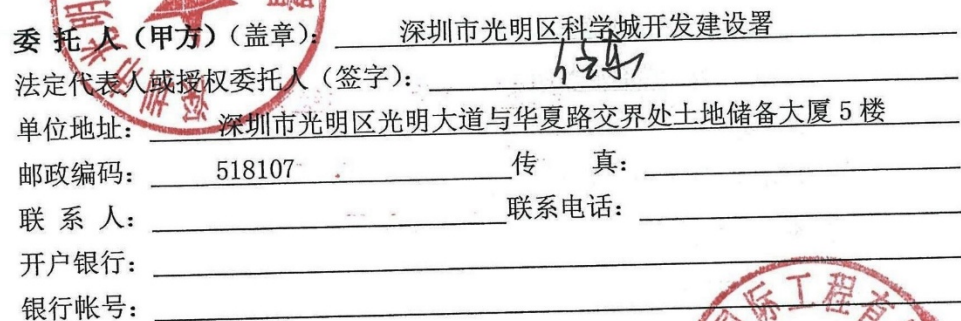 委 托 人（甲方）（盖章）：深圳市光明区科学城开发建设署
法定代表人或授权委托人（签字）：
单位地址：深圳市光明区光明大道与华夏路交界处土地储备大厦 5 楼
邮政编码：518107 传 真：
联 系 人： 联系电话：
开户银行：
银行帐号：
际工程有